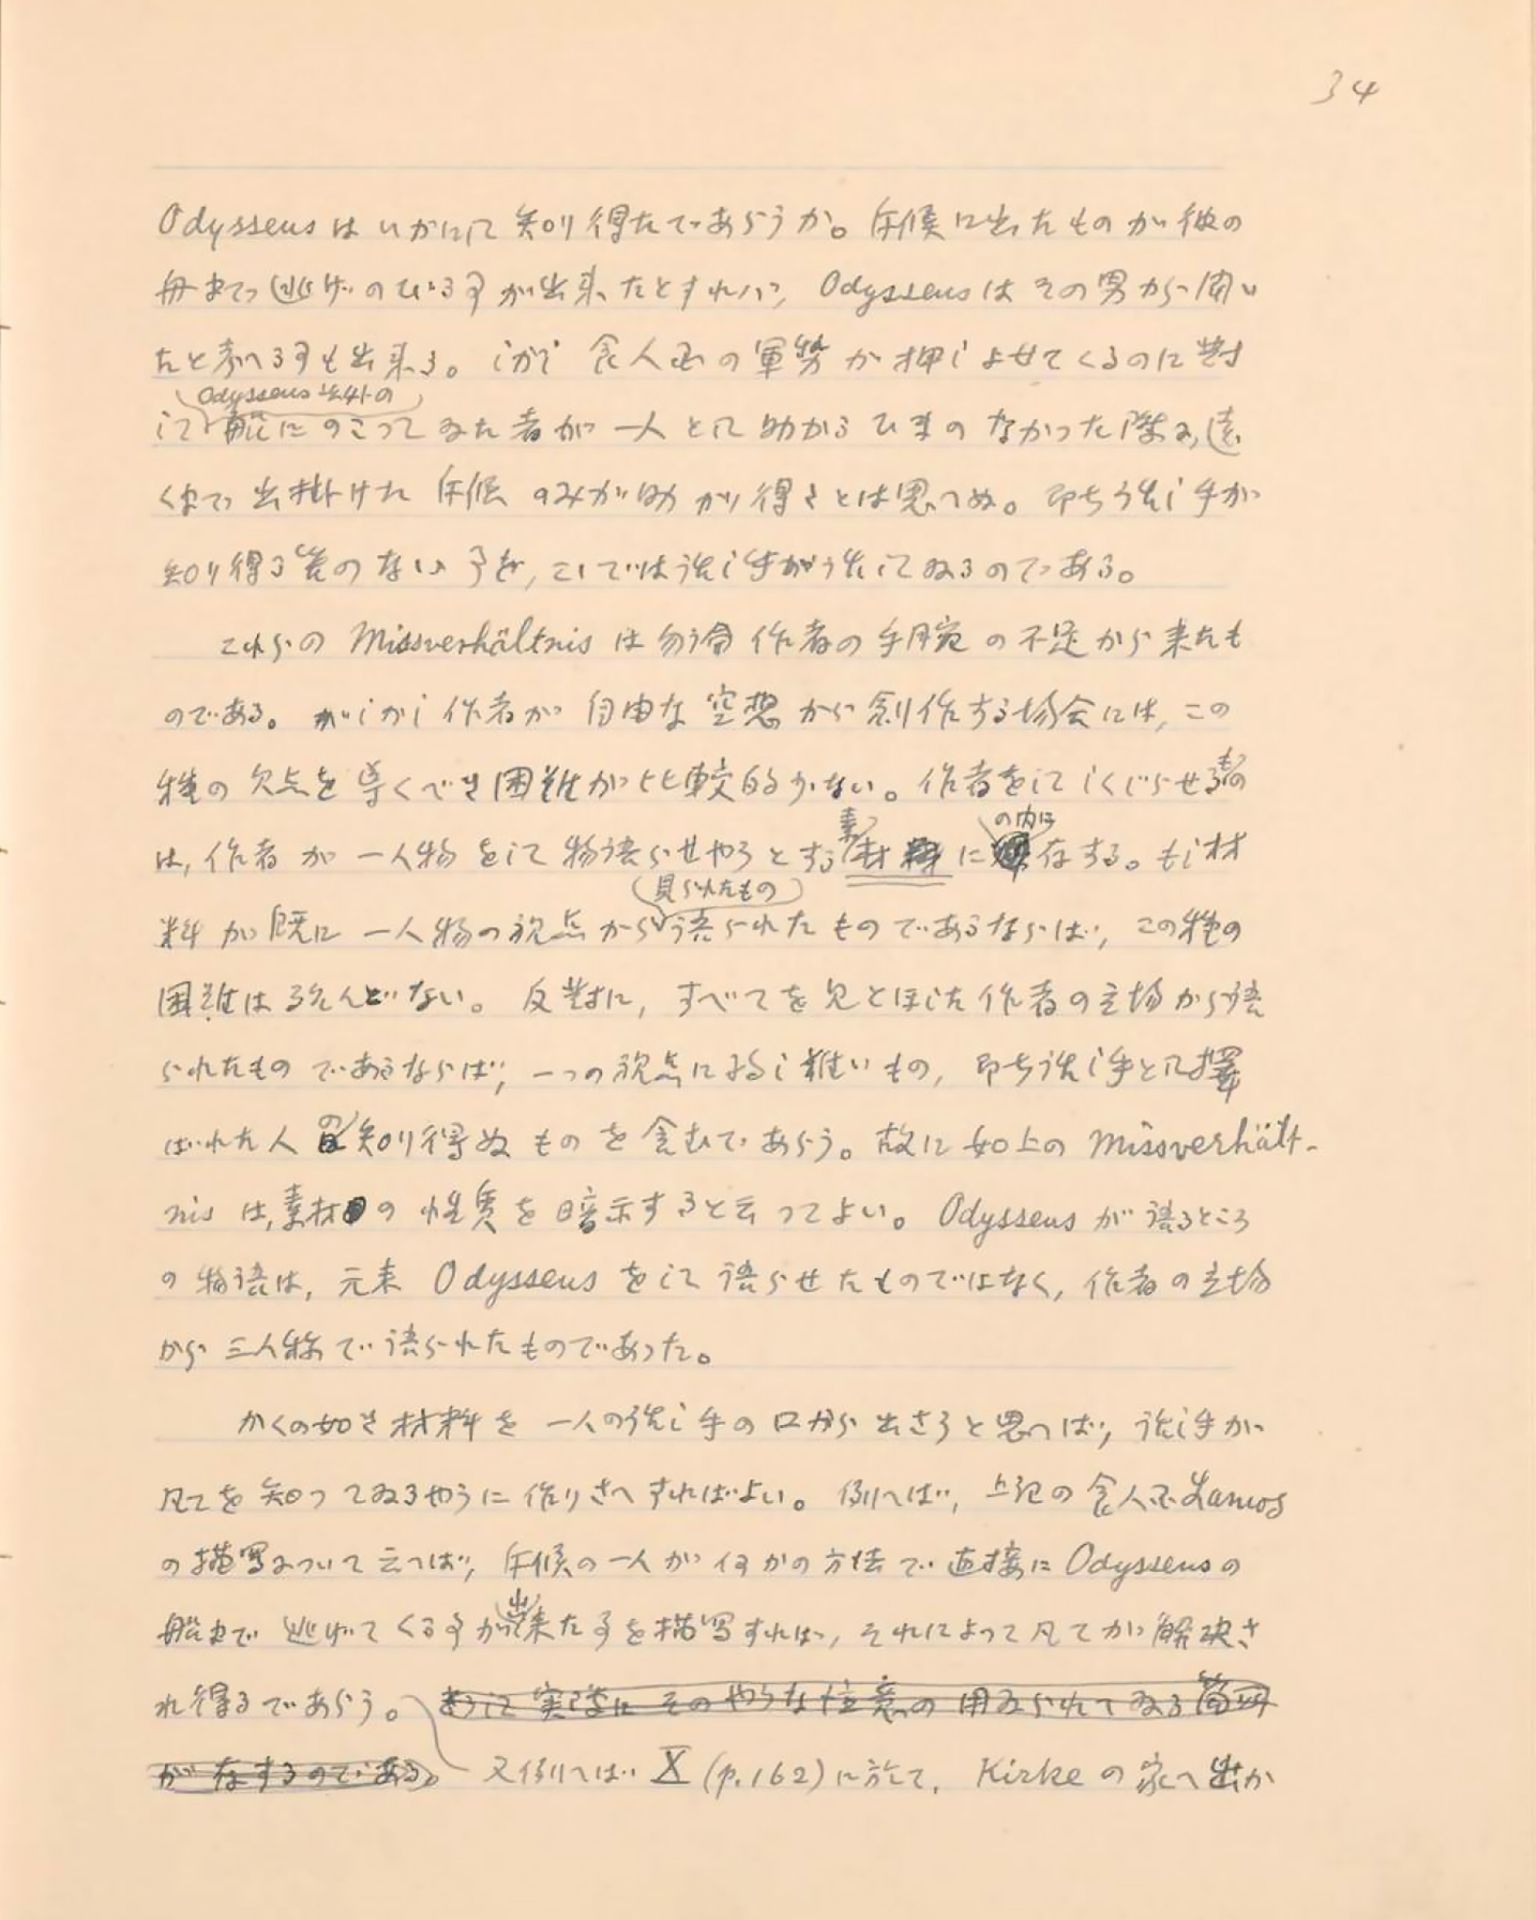 34
Odysseusはいかにして知り得たであらうか。斥候に出たものが彼の
舟まで逃げのびる事が出来たとすれば、Odysseusはその男から聞い
たと考へる事も出来る。しかし食人国の軍勢が押しよせてくるのに対
して、Odysseus以外の船にのこってゐた者が一人として助かるひまのなかった際に、遠
くまで出掛けた斥候のみが助かり得たとは思へぬ。即ち話し手が
知り得る筈のない事を、こゝでは話し手が話してゐるのである。
これらのMissverhältnisは勿論作者の手腕の不足から来たも
のである。しかし作者が自由な空想から創作する場合には、この
種の欠点を導くべき困難が比較的少ない。作者をしてしくじらせるもの
は、作者が一人物をして物語らせやうとする素材の内に存する。もし材
料が既に一人物の視点から見られたもの語られたものであるならば、この種の
困難は殆んどない。反対に、すべてを見とほした作者の立場から語
られたものであるならば、一つの視点に移し難いもの、即ち話し手として択
ばれた人の知り得ぬものを含むであらう。故に如上のMissverhält-
nisは、素材の性質を暗示すると云ってよい。Odysseusが語るところ
の物語は、元来Odysseusをして語らせたものではなく、作者の立場
から三人称で語られたものであった。
かくの如き材料を一人の話し手の口から出さうと思へば、話し手が
凡てを知ってゐるやうに作りさへすればよい。例へば、上記の食人国Lamos
の描写について云へば、斥候の一人が何かの方法で直接にOdysseusの
船まで逃げてくる事が出来た事を描写すれば、それによって凡てが解決さ
れ得るであらう。そうして実際にそのやうな注意の用ゐられてゐる箇所
が存するのである。又例へばX(p.162)に於て、Kirkeの家へ出か